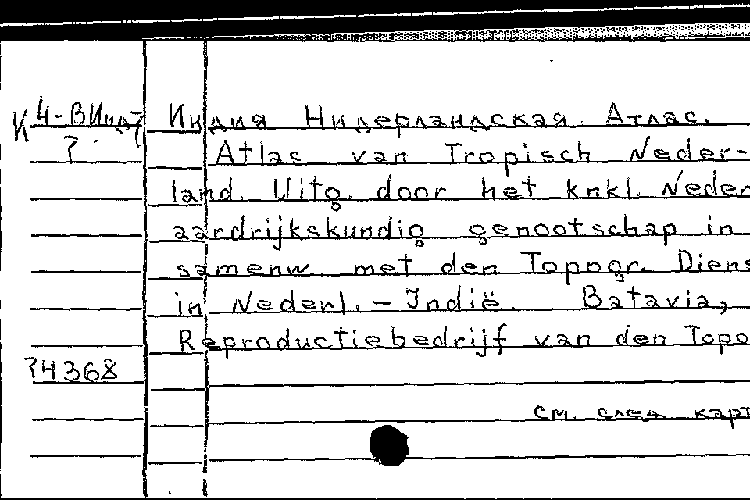 К 4-ВИнд Индия Нидерландская. Атлас.
? Atlas van Tropisch Neder-
land. Uitg. door het knkl. Neder
aardrijkskundig genootschap in
samenw. met den Topogr. Diens
in Nederl.-Indië. Batavia,
Reproductiebedrijf van den Topo
?4368
см. след. карт